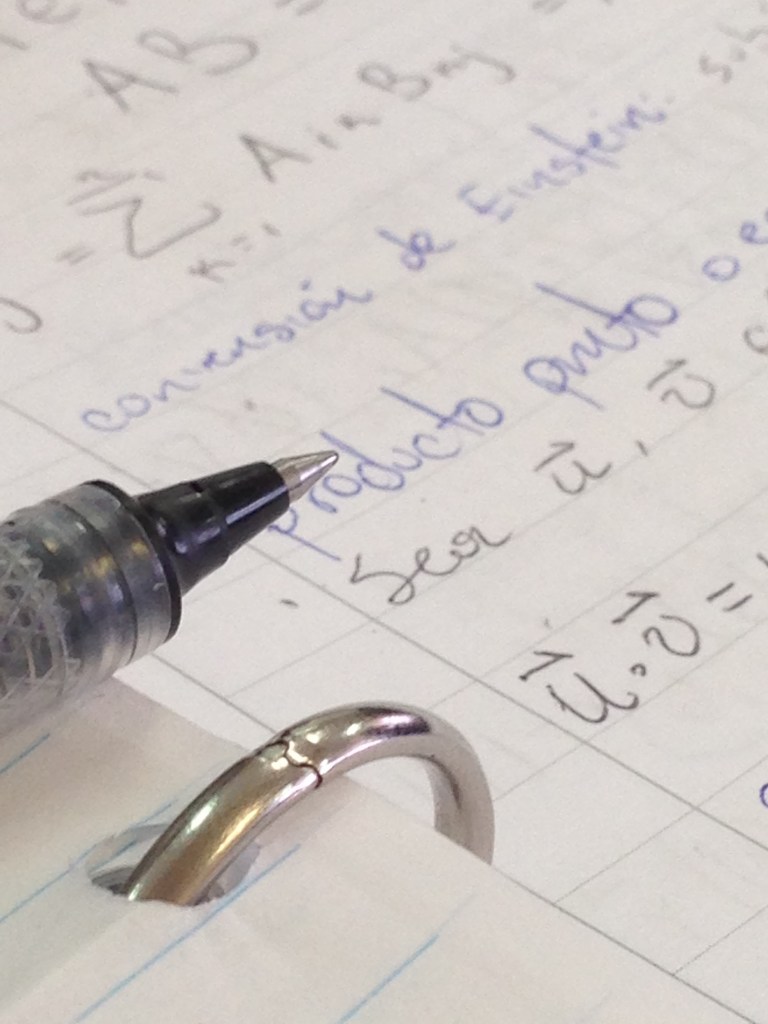 AB =
= Σ A B =
conversión de Einstein:
producto punto o
Sea u⃗, v⃗
u⃗·v⃗ =